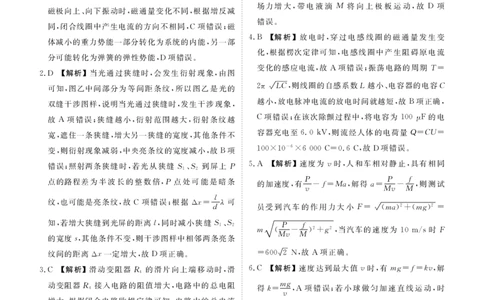 磁极向上、向下振动时,磁通量变化不同,根据增反减
同,闭合线圈中产生电流的方向不相同,C 项错误;磁
体减小的重力势能一部分转化为系统的内能,另一部
分可能转化为弹簧的弹性势能,D 项错误。
2. D 【解析】当光通过狭缝时,会发生衍射现象,由图
可知,图乙中间部分为等间距条纹,所以图乙是光的
双缝干涉图样,说明当光通过狭缝时,发生干涉现象,
故 A 项错误;狭缝越小,衍射范围越大,衍射条纹越
宽,遮住一条狭缝,增大另一狭缝的宽度,其他条件不
变,则衍射现象减弱,中央亮条纹的宽度减小,故 B 项
错误;照射两条狭缝时,若光从狭缝 S₁、S₂ 到屏上 P
点的路程差为半波长的整数倍,P 点处可能是暗条
纹,也可能是亮条纹,故 C 项错误;根据 Δx = l/d λ 可
知,若增大狭缝到光屏的距离 l,同时减小狭缝 S₁、S₂
的宽度,其他条件不变,则干涉图样中相邻两条亮条
纹间的距离 Δx 一定增大,故 D 项正确。
3. C 【解析】滑动变阻器 R₁ 的滑片向上端移动时,滑
动变阻器 R₁ 接入电路的阻值增大,电路中的总电阻
场力增大,带电液滴 M 将向上极板运动,故 D 项
错误。
4. B 【解析】放电时,穿过电感线圈的磁通量发生变
化,根据楞次定律可知,电感线圈中产生阻碍原电流
变化的感应电流,故 A 项错误;振荡电路的周期 T=
2π √LC,则线圈的自感系数 L 越小、电容器的电容 C
越小,放电脉冲电流的放电时间就越短,故 B 项正确,
C 项错误;在该次除颤过程中,将电容为 100 μF 的电
容器充电至 6.0 kV,则流经人体的电荷量 Q=CU=
100×10⁻⁶×6 000 C=0.6 C,故 D 项错误。
5. A 【解析】速度为 v 时,人和车相对静止,具有相同
的加速度,有 P/v − f=Ma,解得 a= P/Mv − f/M,则测试
员受到汽车的作用力大小 F= √((ma)²+(mg)²) =
m √((P/Mv − f/M)²+g²),当汽车的速度为 10 m/s 时 F
=600√2 N,故 A 项正确。
6. C 【解析】速度达到最大值 v 时,有 mg=f=kv,解
得 k= mg/v,A 项错误;若小球做匀加速直线运动,时